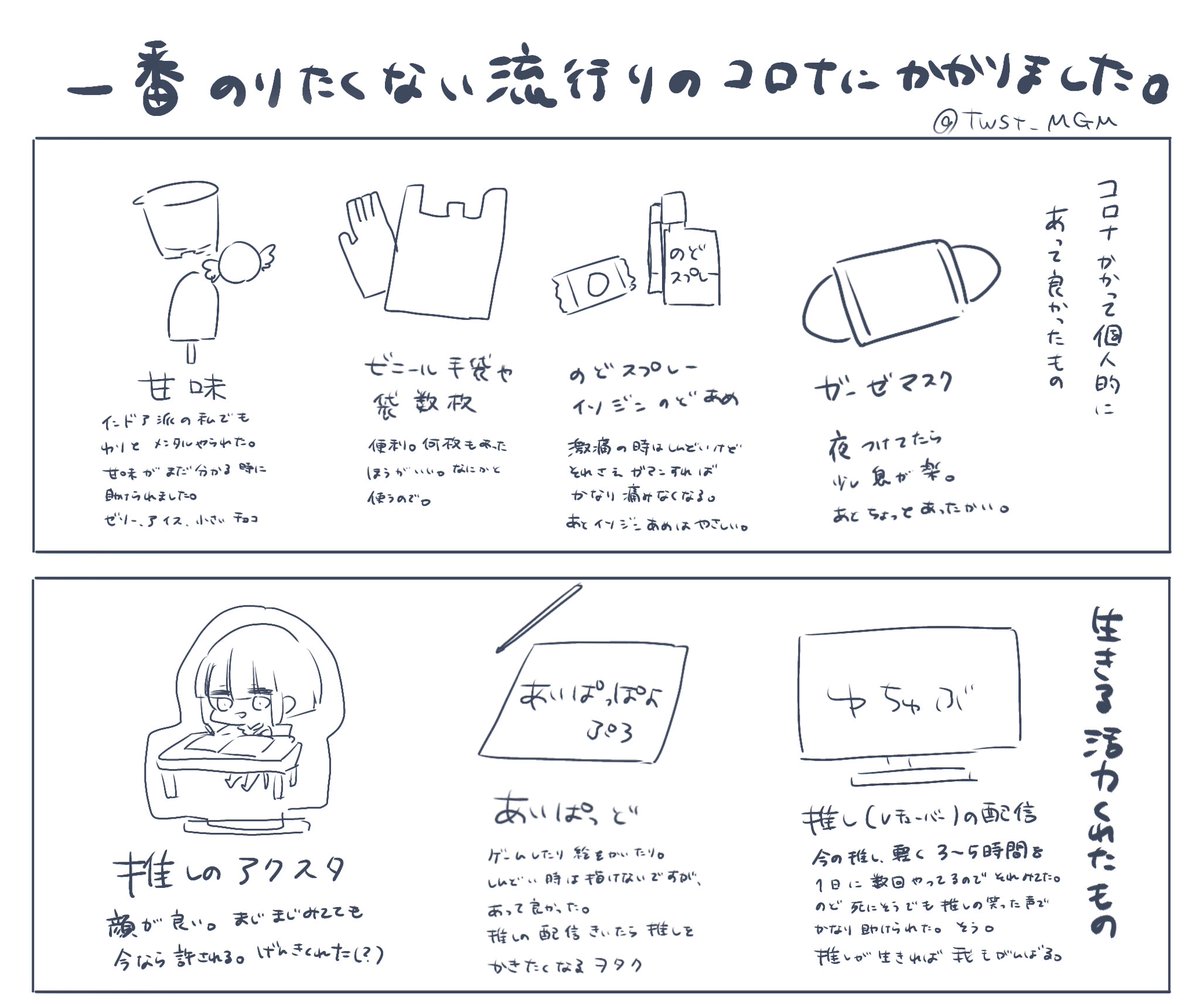 一番のりたくない流行りのコロナにかかりました。
@TWST_MGM
コロナかかって個人的に
あって良かったもの
ガーゼマスク
夜つけてたら
少し息が楽。
あとちょっとあったかい。
のど
スプレー
のどスプレー
イソジンのどあめ
激痛の時はしんどいけど
それさえガマンすれば
かなり痛みなくなる。
あとイソジンあめはやさしい。
ビニール手袋や
袋数枚
便利。何枚もあった
ほうがいい。なにかと
使うので。
甘味
インドア派の私でも
わりとメンタルやられた。
甘味がまだ分かる時に
助けられました。
ゼリー、アイス、小さいチョコ
生きる活力くれたもの
ゆちゅぶ
推し(Vチューバー)の配信
今の推し、軽く3〜5時間を
1日に数回やってるのでそれみてた。
のど死にそうでも推しの笑った声で
かなり助けられた。そう。
推しが生きれば我もがんばる。
あいぱっぽよ
ぷろ
あいぱっど
ゲームしたり絵をかいたり。
しんどい時は描けないですが、
あって良かった。
推しの配信きいたら推しを
かきたくなるヲタク
推しのアクスタ
顔が良い。まじまじみてても
今なら許される。げんきくれた(?)